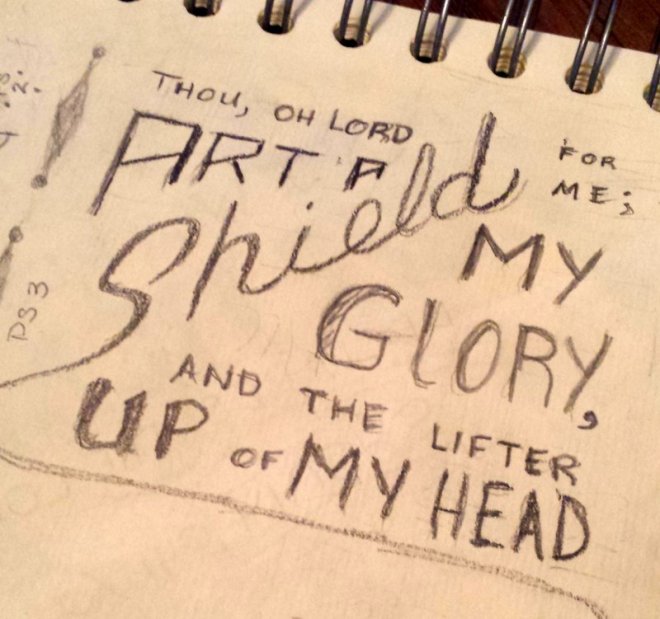 THOU, OH LORD
ART A
Shield
FOR
ME;
MY
GLORY,
AND THE LIFTER
UP OF MY HEAD
PS 3